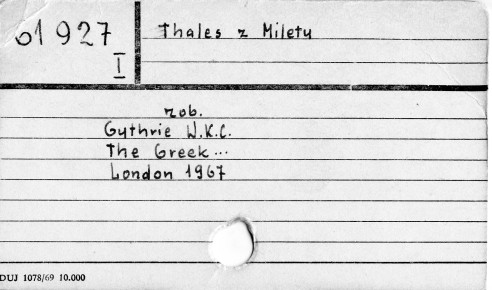 01927
I
Thales z Miletu
zob.
Guthrie W.K.C.
The Greek...
London 1967
DUJ 1078/69 10.000